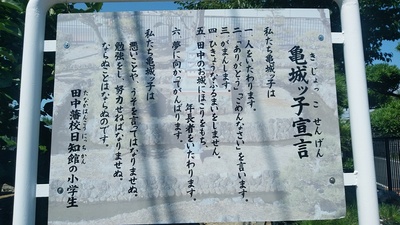 亀城ッ子宣言
きじょっこ せんげん
私たち亀城ッ子は
一 人をいたわります。
二「ありがとう」「ごめんなさい」を言います。
三 がまんします。
四 ひきょうなふるまいをしません。
五 田中のお城にほこりをもち、
年長者をいたわります。
六 夢に向かってがんばります。
私たち亀城ッ子は
悪いことや、うそを言ってはなりませぬ。
勉強をし、努力せねばなりませぬ。
ならぬことはならぬのです。
田中藩校日知館の小学生
たなかはんこうにっちかん